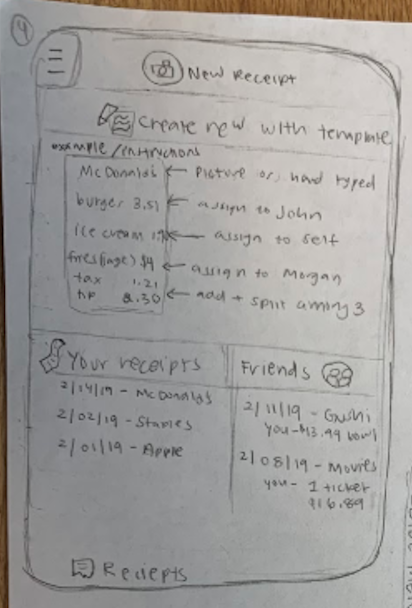 4
New Receipt
Create new with template
example/instructions
McDonald's ← Picture or hand typed
burger 3.51 ← assign to John
ice cream ← assign to self
fries (large) $4 ← assign to Morgan
tax 1.21
tip 2.30 ← add + split among 3
Your receipts
2/14/19 - McDonalds
2/02/19 - Staples
2/01/19 - Apple
Friends
2/11/19 - Gushi
you - $13.99 bowl
2/08/19 - Movies
you - 1 ticket
$16.89
Reciepts